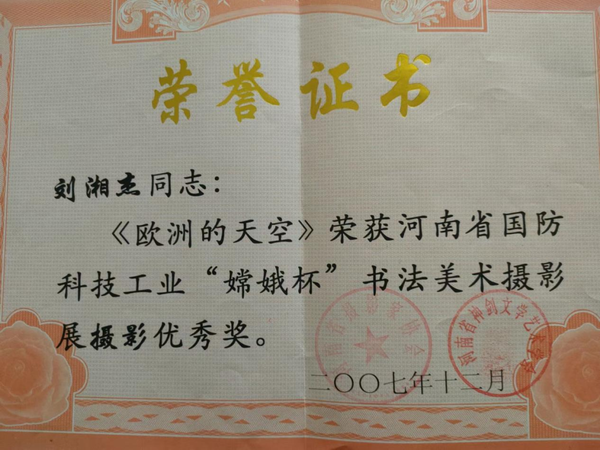 荣誉证书
刘湘杰同志：
《欧洲的天空》荣获河南省国防
科技工业“嫦娥杯”书法美术摄影
展摄影优秀奖。
河南省摄影家协会
河南省神剑文学艺术学会
二〇〇七年十二月